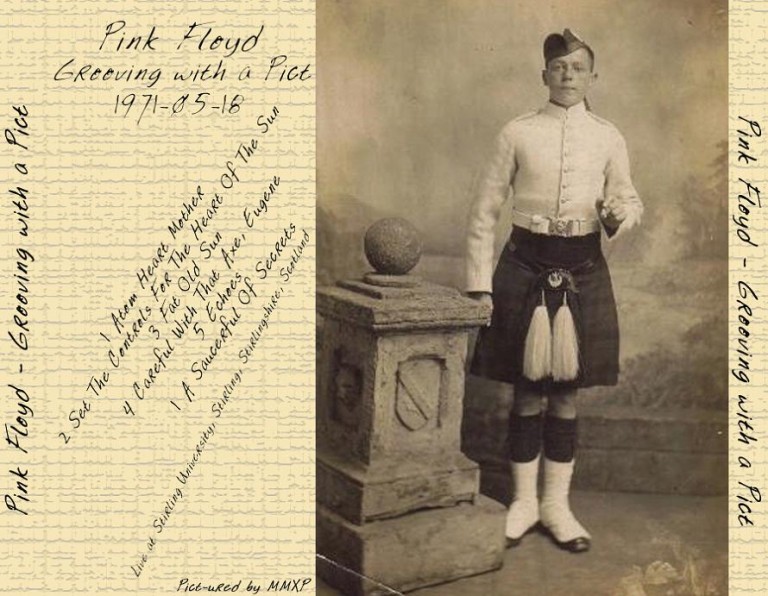 Pink Floyd - Grooving with a Pict
Pink Floyd
Grooving with a Pict
1971-05-18
1 Atom Heart Mother
2 Set The Controls For The Heart Of The Sun
3 Fat Old Sun
4 Careful With That Axe, Eugene
5 Echoes
1 A Saucerful Of Secrets
Live at Stirling University, Stirling, Stirlingshire, Scotland
Pict-ured by MMXP
Pink Floyd - Grooving with a Pict